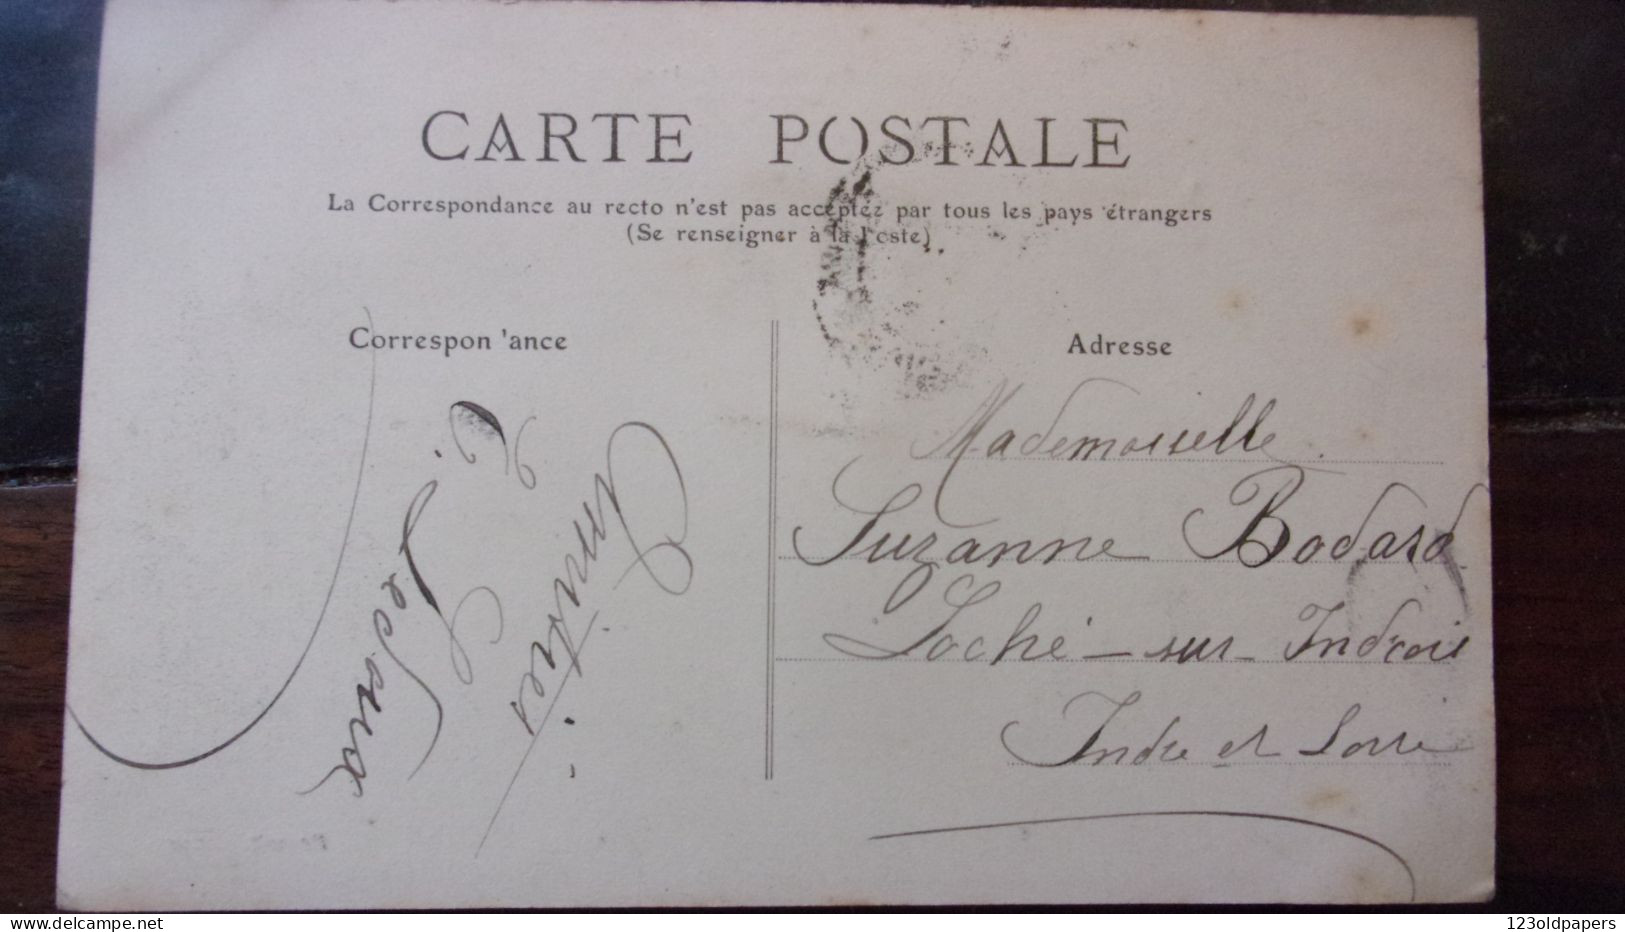 CARTE POSTALE
La Correspondance au recto n'est pas acceptée par tous les pays étrangers
(Se renseigner à la Poste)
Correspon 'ance
Adresse
Amitiés
Mademoiselle
Suzanne Bodard
Loché-sur-Indrois
Indre et Loire
www.delcampe.net
123oldpapers